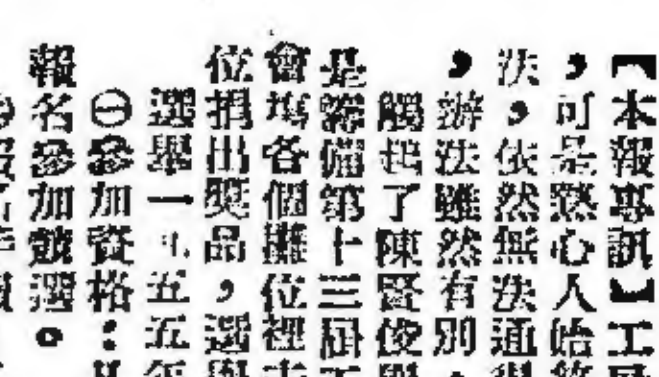 【本報專訊】工展
，可是熱心人始終
法，依然無法通
，辦法雖然有別，
觸起了陳賢俊
是籌備第十三屆工
會場各個攤位裡去
位捐出獎品，選
選舉一九五五年
㊀參加資格：凡
報名參加競選。